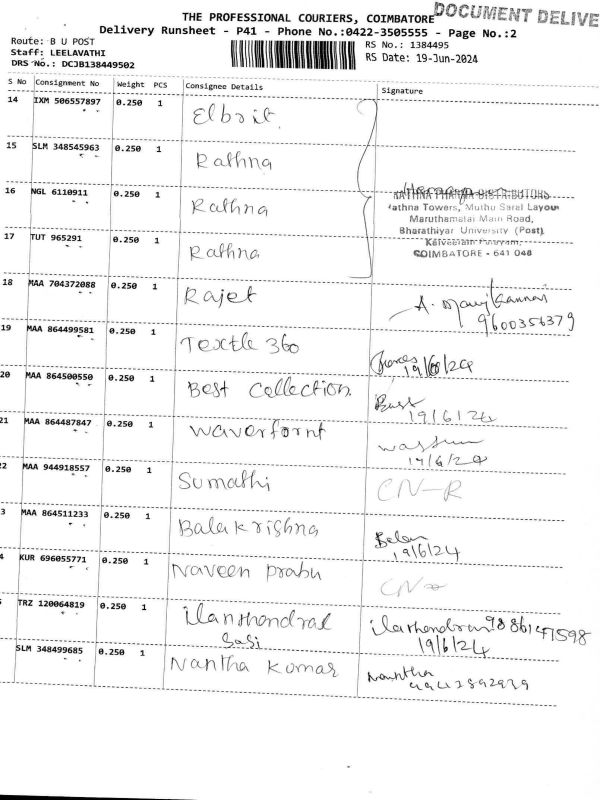 DOCUMENT DELIVE
THE PROFESSIONAL COURIERS, COIMBATORE
Delivery Runsheet - P41 - Phone No.:0422-3505555 - Page No.:2
Route: B U POST
Staff: LEELAVATHI
DRS No.: DCJB138449502
RS No.: 1384495
RS Date: 19-Jun-2024
S No Consignment No Weight PCS Consignee Details Signature
14 IXM 506557897 0.250 1 Elbrit.
15 SLM 348545963 0.250 1 Rathna
16 NGL 6110911 0.250 1 Rathna
RATHNA PHARMA DISTRIBUTORS
Rathna Towers, Muthu Saral Layout
Maruthamalai Main Road,
Bharathiyar University (Post),
COIMBATORE - 641 046
17 TUT 965291 0.250 1 Rathna
18 MAA 704372088 0.250 1 Rajet
9600356379
19 MAA 864499581 0.250 1 Textle 360
19/6/24
20 MAA 864500550 0.250 1 Best Collection.
19/6/24
21 MAA 864487847 0.250 1 Waverfornt
19/6/24
22 MAA 944918557 0.250 1 Sumathi CN-R
3 MAA 864511233 0.250 1 Balakrishna Balan
19/6/24
4 KUR 696055771 0.250 1 Naveen prabu CN
TRZ 120064819 0.250 1 ilanthendral ilanthendran 9886147598
Sasi 19/6/24
SLM 348499685 0.250 1 Nantha Kumar Nantha